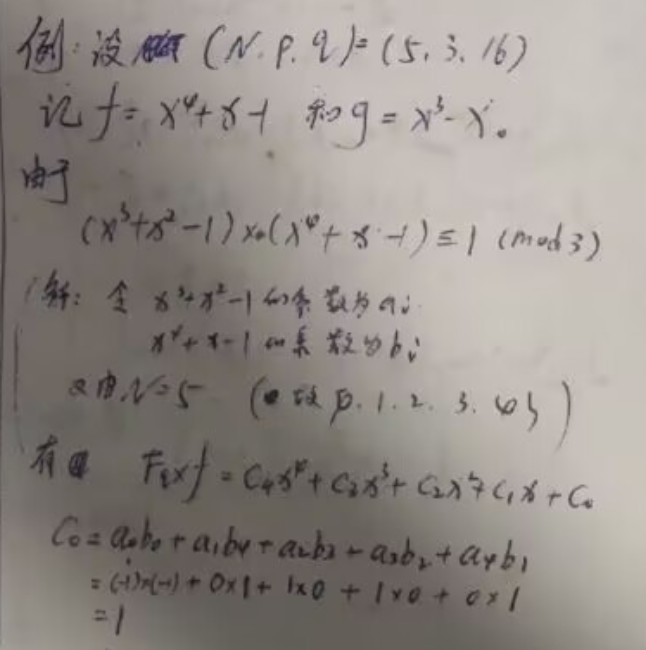 例：设 (N.p.q)=(5.3.16)
记 f = x⁴+x-1 和 g = x³-x。
由于
(x³+x²-1)×(x⁴+x-1)≡1 (mod3)
(解：令 x³+x²-1的系数为aᵢ
x⁴+x-1的系数为bᵢ
又由N=5 (取0.1.2.3.4)
有 ×f = C₄x⁴+C₃x³+C₂x²+C₁x+C₀
C₀=a₀b₀+a₁b₄+a₂b₃+a₃b₂+a₄b₁
=(-1)×(-1)+0×1+1×0+1×0+0×1
=1